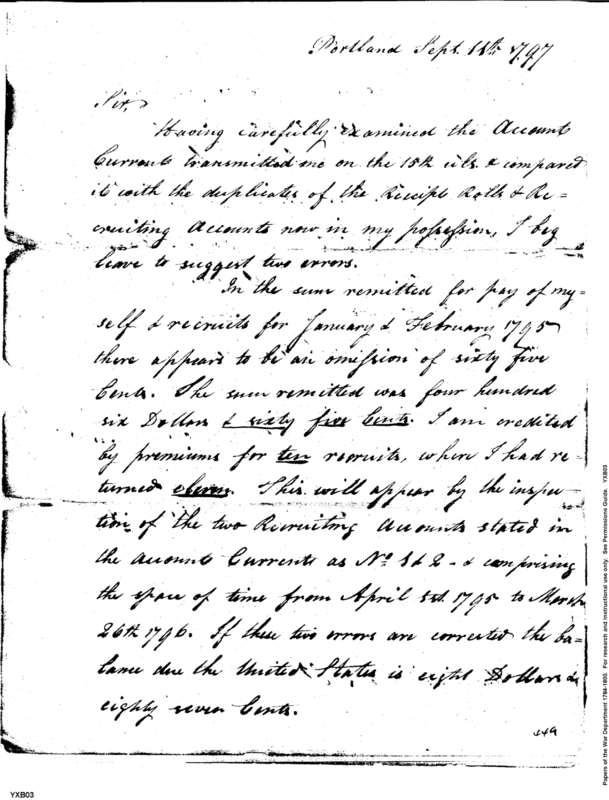 Portland Sept. 11th 1797
Sir,
Having carefully examined the Account
Current transmitted me on the 15th ult. & compared
it with the duplicates of the Receipt Rolls & Re=
cruiting Accounts now in my possession, I beg
leave to suggest two errors.
In the sum remitted for pay of my=
self & recruits for January & February 1795
there appears to be an omission of sixty five
Cents. The sum remitted was four hundred
six Dollars & sixty five Cents. I am credited
by premiums for ten recruits, where I had re=
turned eleven. This will appear by the inspec=
tion of the two Recruiting Accounts stated in
the Account Currents as No. 1 & 2 - & comprising
the space of time from April 1st. 1795 to March
26th 1796. If these two errors are corrected the ba=
lance due the United States is eight Dollars &
eighty seven Cents.
449
YXB03
Papers of the War Department 1784-1800. For research and instructional use only. See Permissions Guide. YXB03